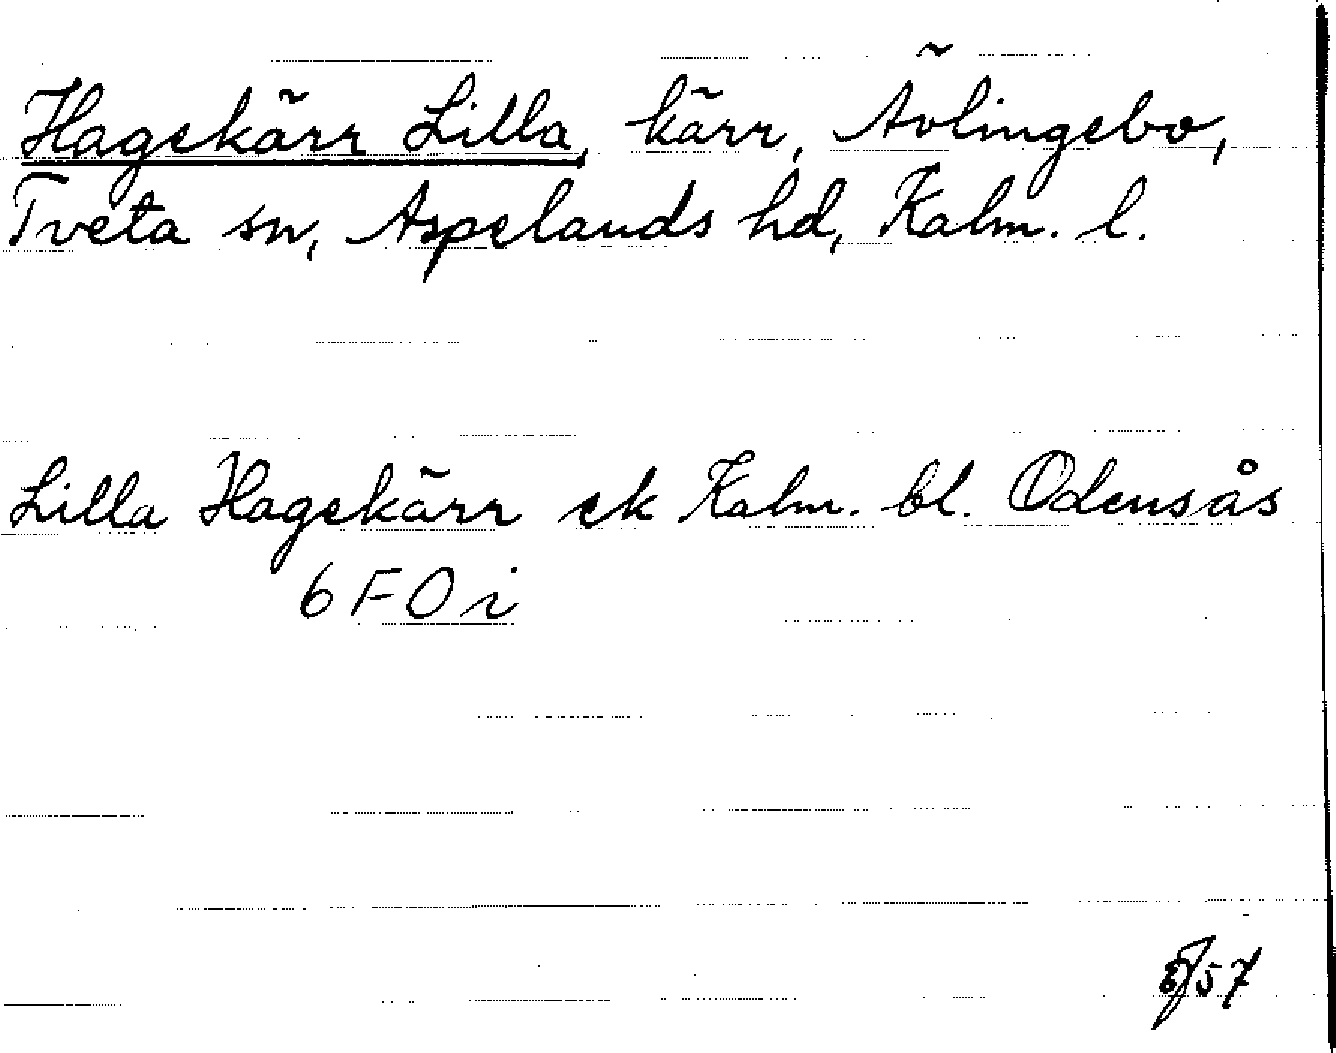 Hagekärr Lilla, kärr, Ävlingebo,
Tveta sn, Aspelands hd, Kalm. l.
Lilla Hagekärr ek Kalm. bl. Odensås
6 F O i
57